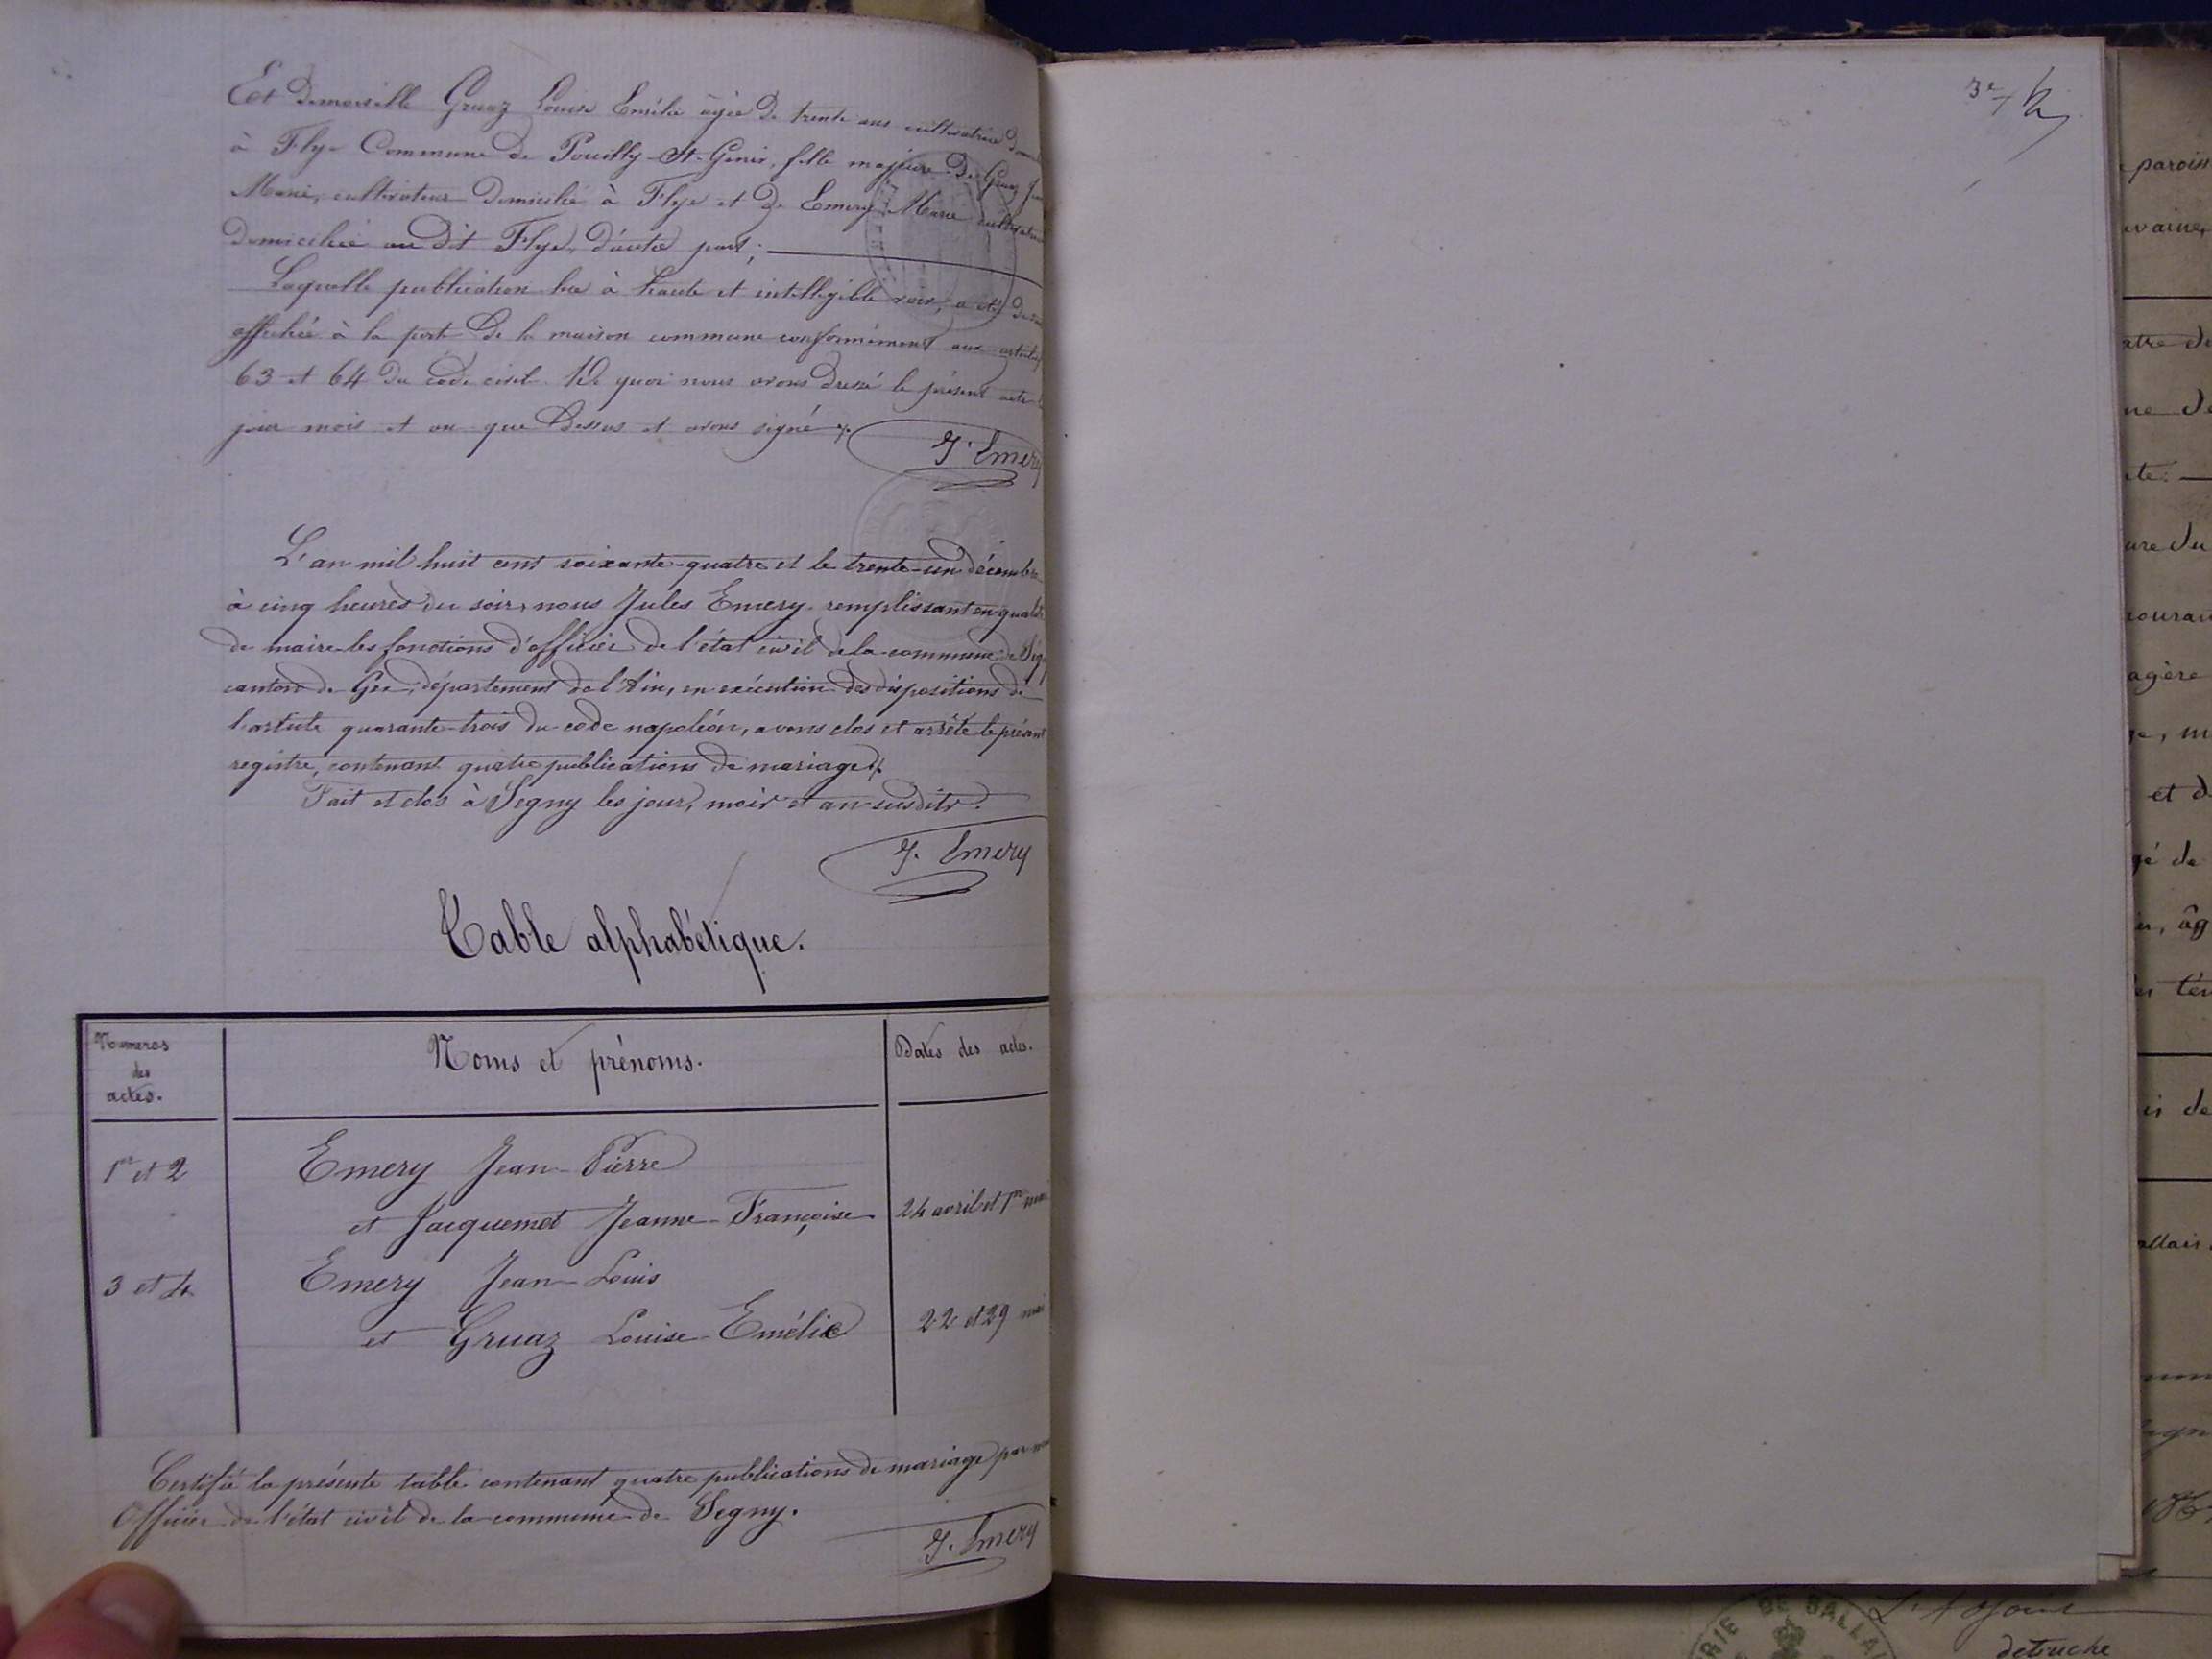 Et demoiselle Gruaz Louise Emélie âgée de trente ans cultivatrice
à Flye Commune de Pouilly-St-Genix, fille majeure de Gruaz
Marie, cultivateur domicilié à Flye et de Emery Marie cultivatrice
domiciliée au dit Flye, d'autre part;
Laquelle publication lue à haute et intelligible voix, a été de suite
affichée à la porte de la maison commune conformément aux articles
63 et 64 du code civil. De quoi nous avons dressé le présent acte
jour mois et an que dessus et avons signé
J. Emery
L'an mil huit cent soixante-quatre et le trente-un décembre
à cinq heures du soir, nous Jules Emery remplissant en qualité
de maire les fonctions d'officier de l'état civil de la commune de Ség
canton de Gex, département de l'Ain, en exécution des dispositions de
l'article quarante-trois du code napoléon, avons clos et arrêté le présent
registre, contenant quatre publications de mariage
Fait et clos à Segny les jour, mois et an susdits.
J. Emery
Table alphabétique.
Numeros des actes. Noms et prénoms. Dates des actes.
1er et 2 Emery Jean-Pierre
et Jacquemet Jeanne-Françoise 24 avril et 1er mai
3 et 4 Emery Jean-Louis
et Gruaz Louise-Emélie 22 et 29 mai
Certifié la présente table contenant quatre publications de mariage par nous
Officier de l'état civil de la commune de Segny.
J. Emery
3e
paroiss
atre de
ne de
te:
ure du
couran
agère
et d
gé de
âg
is de
L'Adjoint
detruche